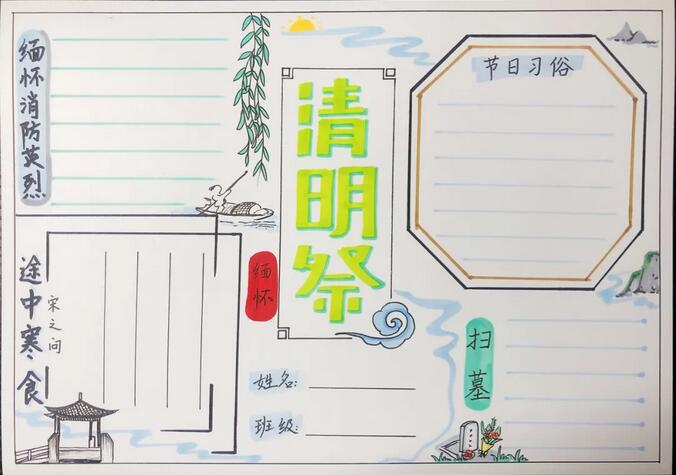 缅怀消防英烈
清明祭
节日习俗
缅怀
途中寒食
宋之问
姓名:
班级:
扫墓